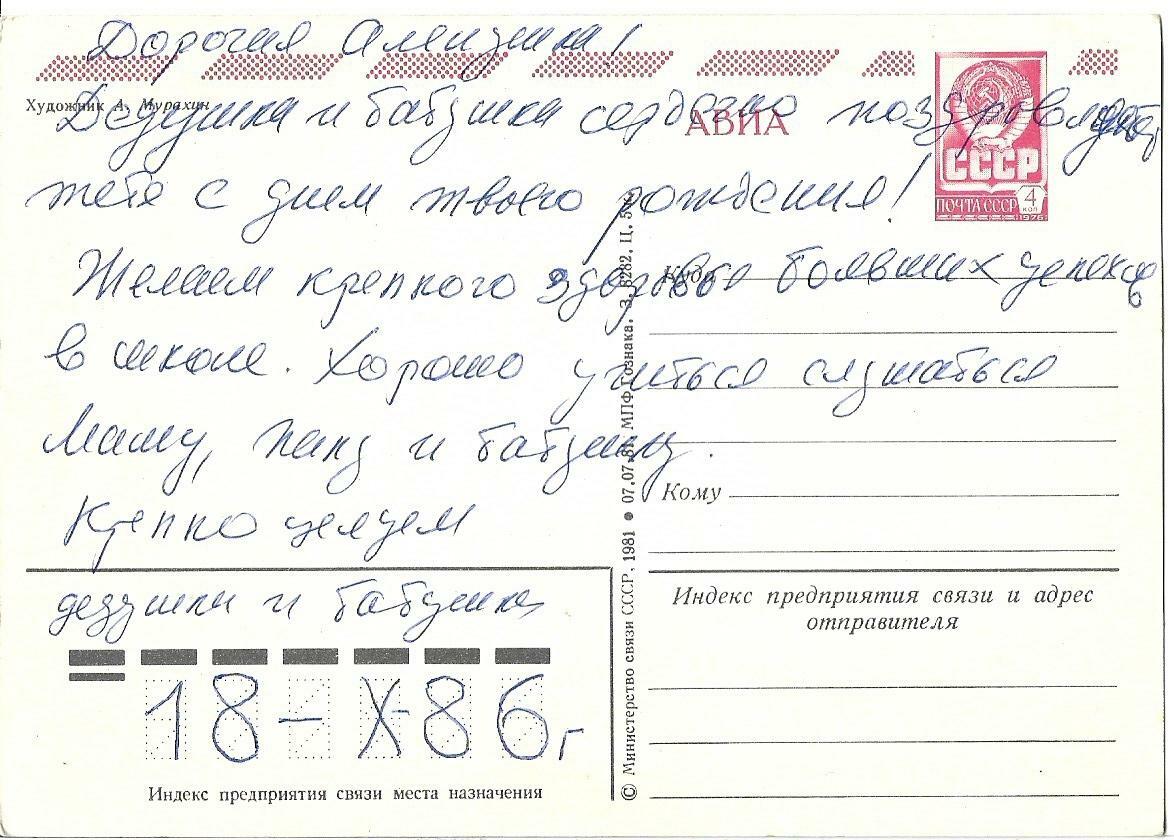 Дорогая Аленушка!
Художник А. Мурахин
Дедушка и бабушка сердечно поздровляют
тебя с днем твоего рождения!
АВИА
СССР
ПОЧТА СССР
4
КОП
1976
Желаем крепкого здоровья больших успехов
в школе. Хорошо учиться слушаться
Маму, папу и бабушку.
Крепко целуем
дедушка и бабушка
18-X-86 г
Индекс предприятия связи места назначения
© Министерство связи СССР, 1981 ● 07.07.81. МПФ Гознака. З. 8282. Ц.
Куда
Кому
Индекс предприятия связи и адрес
отправителя